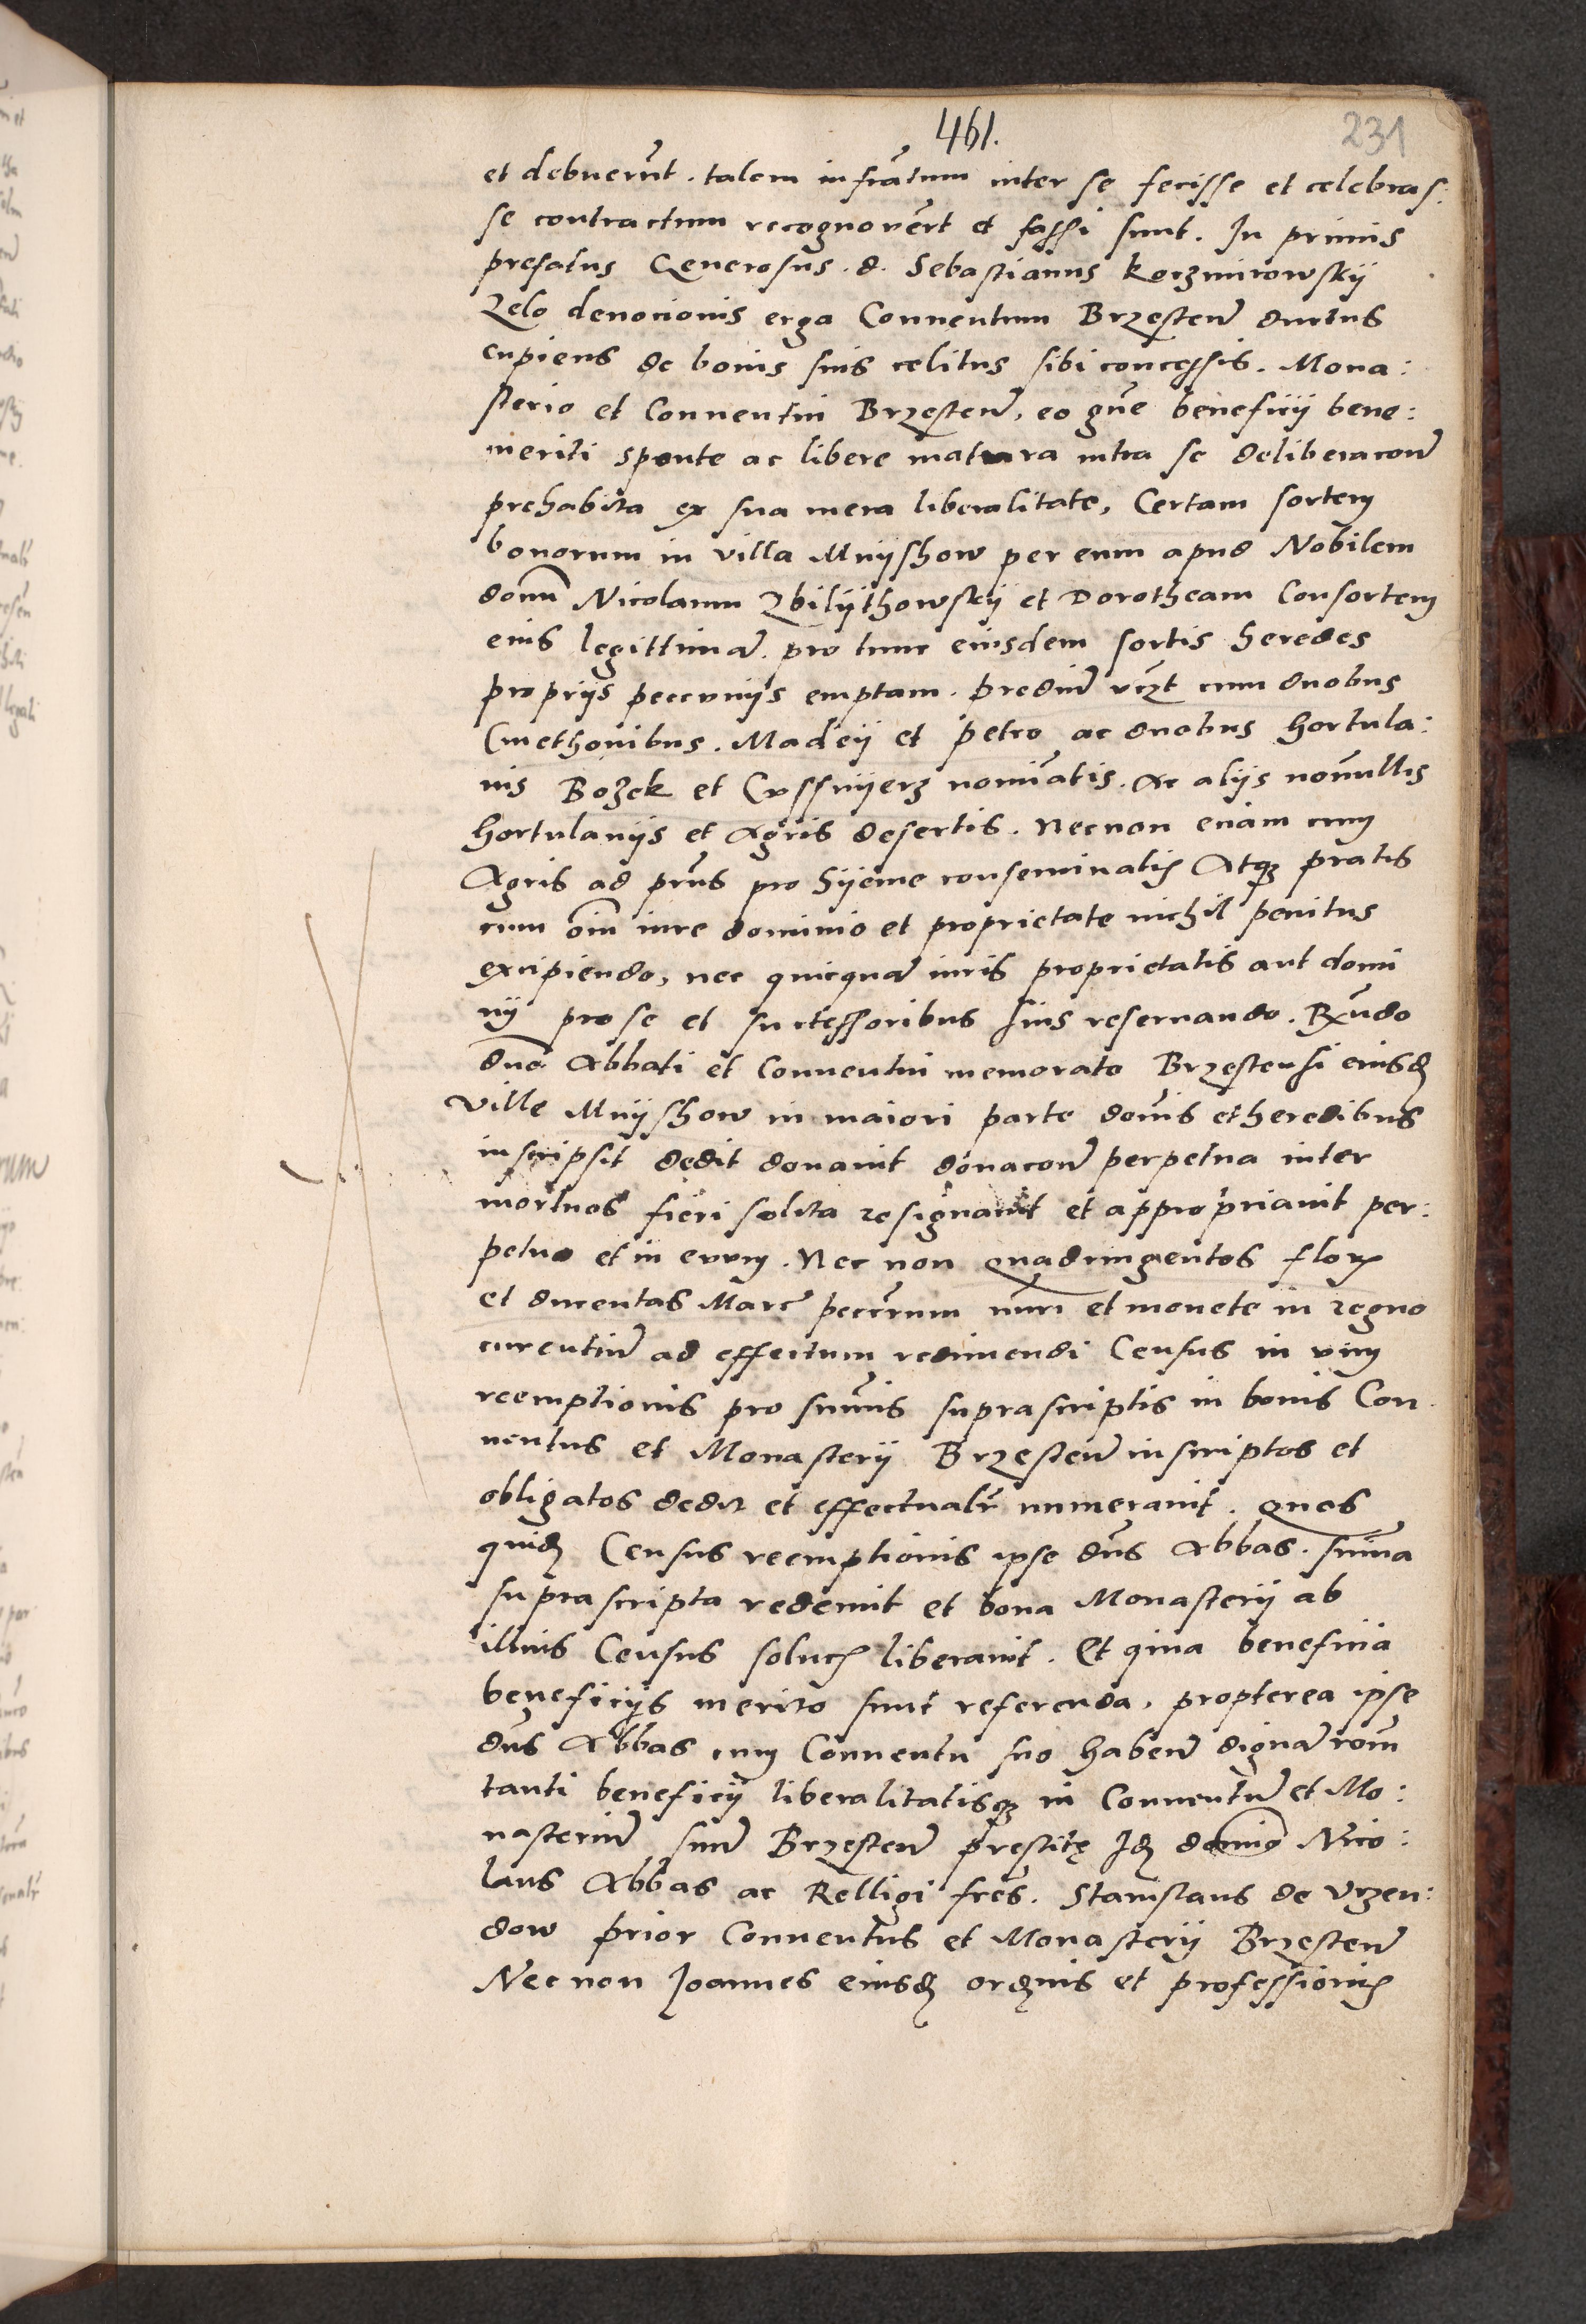 461.
231
et debuerūt. talem infrascītum inter se fecisse et celebras:
se contractum recognovērt et fassi sunt. In primis
prefatus Generosus. d. Sebastianus Korzmirowskij
Zelo devocionis erga Conventum Brzesteñ ductus
cupiens de bonis suis celitus sibi concessis. Mona:
sterio et Conventui Brzesteñ, eo gñe beneficij bene:
meriti sponte ac libere matura intra se deliberacoñ
prehabita ex sua mera liberalitate, Certam sortem
bonorum in villa Mnijshow per eum apud Nobilem
doñm Nicolaum Zbilijthowskij et Dorotheam Consortem
eius legittimã. pro tunc eiusdem sortis heredes
proprijs peccunijs emptam. prediũ vczt cum duobus
Cmethonibus. Madeij et Petro ac duobus hortula:
nis Bozek et Cussnijerz nomiãtis. Ac alijs nonnullis
hortulanijs et Agris desertis. Necnon eciam cum
Agris ad prñs pro hijeme conseminatis Atqȝ pratis
cum oñi iure dominio et proprietate nichil penitus
excipiendo, nec quicquã iuris proprietatis aut domi
nij pro se et successoribus suis reservando. Rñdo
dño Abbati et Conventui memorato Brzestensi eiusđ
Ville Mnijshow in maiori parte doñis et heredibus
inscripsit dedit donavit donacoñ perpetua inter
mortuos fieri solita resignavit et appropriavit per:
petuo et in evum. Nec non Quadringentos flor
et ducentas Marc̃ peccūrum nuṁ et monete in regno
currentiũ ad effectum redimendi Census in vim
reemptionis pro summis suprascriptis in bonis Con
ventus et Monasterij Brzesteñ inscriptos et
obligatos dedit et effectualr̃ numeravit. Quos
quiđ Census reemptionis ipse dñs Abbas. summa
suprascripta redemit et bona Monasterij ab
illius Census soluc̃ liberavit. Et quia beneficia
beneficijs merito sunt referenda, propterea ipse
dñs Abbas cum Conventu suo habeñ dignã roñm
tanti beneficij liberalitatisqȝ in Conventũ et Mo:
nasteriũ suũ Brzesteñ prestitę Iđ domiño Nico:
laus Abbas ac Relligi frẽs. Stanislaus de Vrzen:
dow prior Conventus et Monasterij Brzesteñ
Nec non Joannes eiusđ ordinis et professionis